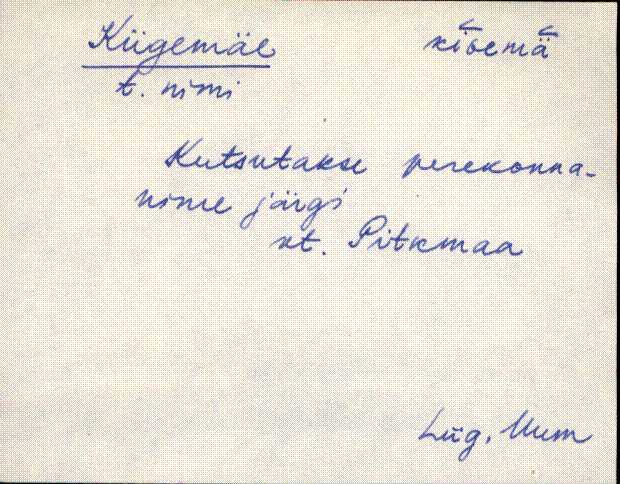 Kiigemäe kīɢemǟ
t. nimi
Kutsutakse perekonna-
nime järgi
vt. Pitkmaa
Lüg. Uum